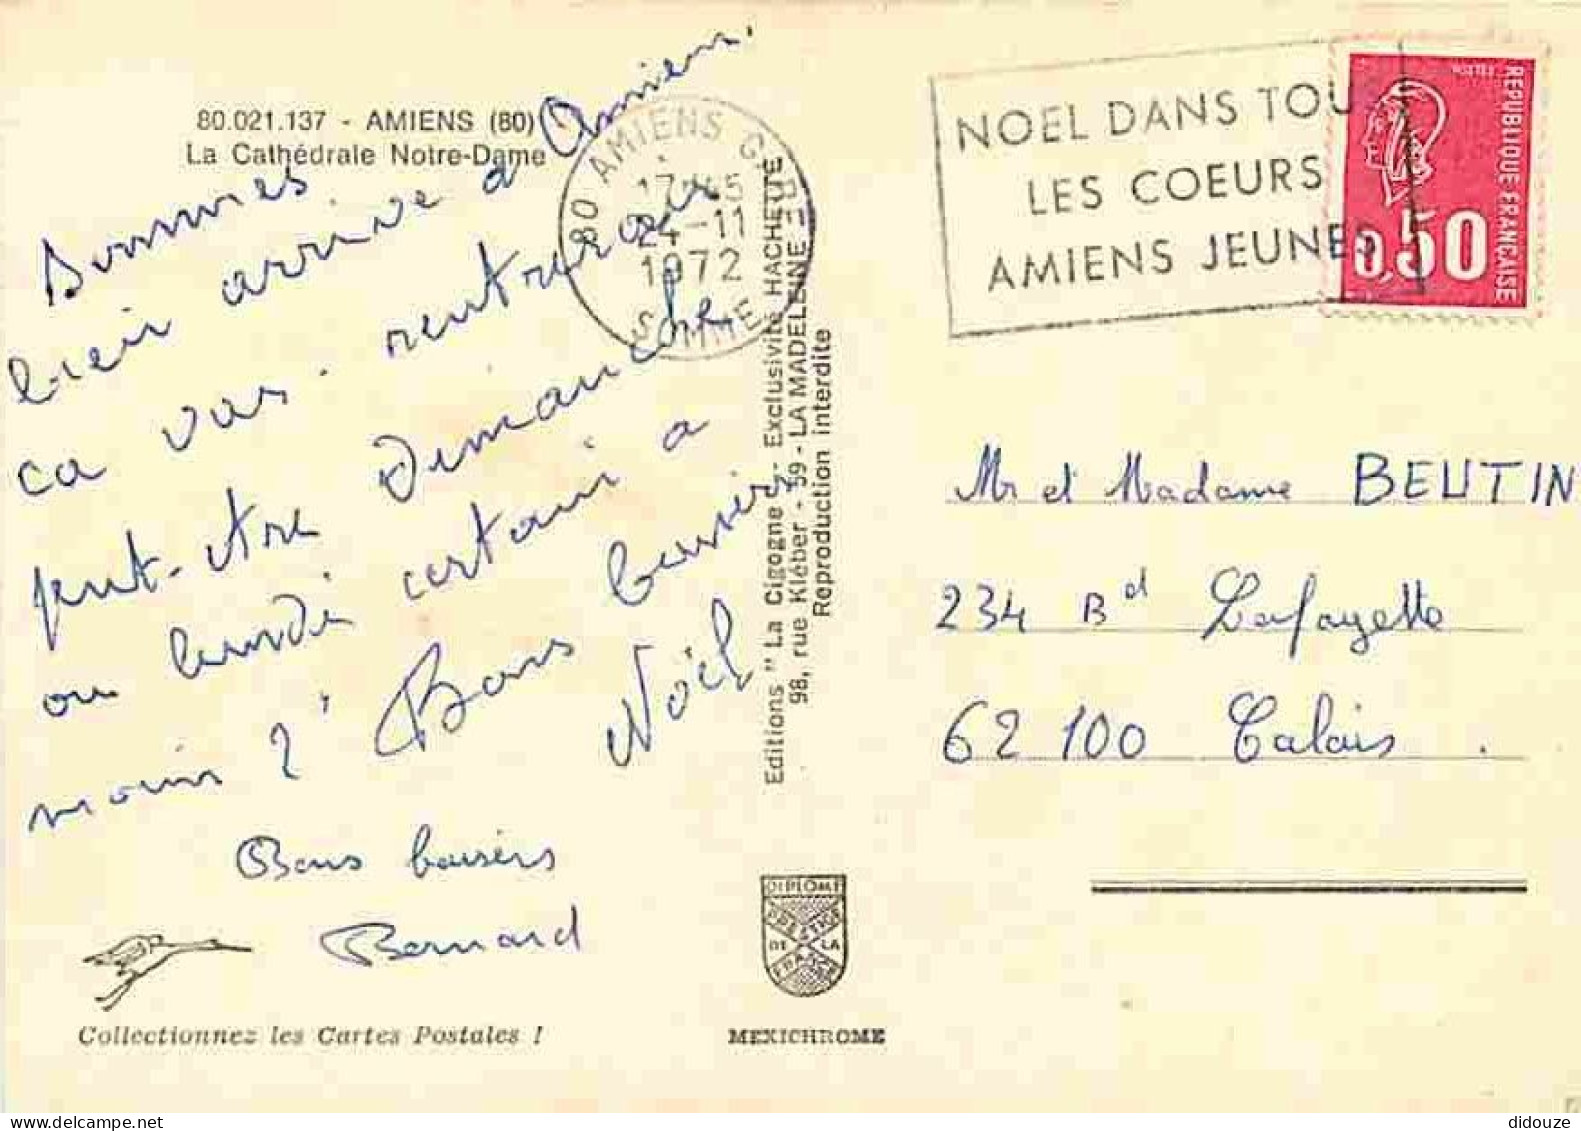 80.021.137 - AMIENS (80)
La Cathédrale Notre-Dame
Sommes
bien arrivé à Amiens.
ça vas. rentrerais
peut-être Dimanche
ou lundi certain a
moin 2' Bons baisers
Noël
Bons baisers
Bernard
Collectionnez les Cartes Postales !
80 AMIENS GARE
24-11
1972
SOMME
Editions "La Cigogne" - Exclusivité HACHETTE
98, rue Kléber - 59 - LA MADELEINE
Reproduction interdite
DIPLOME
PRESTIGE
DE LA
FRANCE
MEXICHROME
NOEL DANS TOUS
LES COEURS
AMIENS JEUNES
REPUBLIQUE FRANÇAISE
0,50
Mr et Madame BEUTIN
234 Bd Lafayette
62100 Calais.
didouze